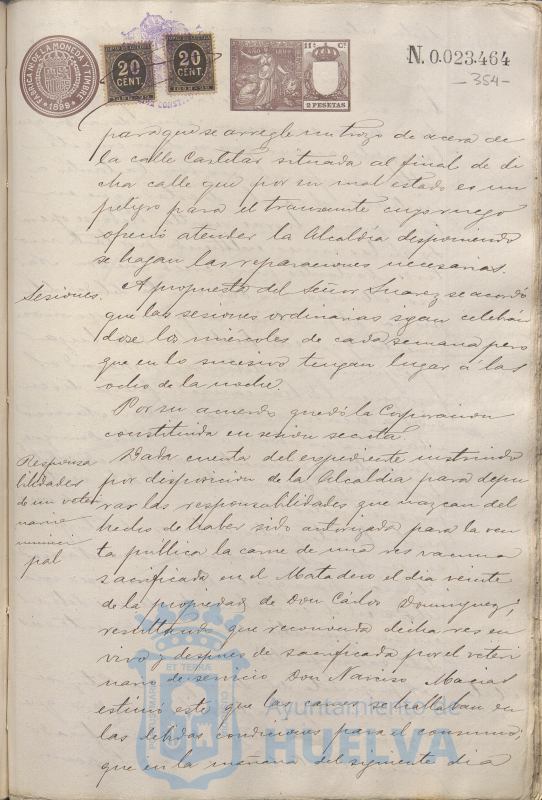 FABRICA N. DE LA MONEDA Y TIMBRE
1899
20
CENT.
20
CENT.
AÑO 1899
11ª Cª
2 PESETAS
N. 0.023.464
—354—
para que se arregle un trozo de acera de
la calle Castelar situada al final de di
cha calle que por su mal estado es un
peligro para el transeunte cuyo ruego
ofreció atender la Alcaldía disponiendo
se hagan las reparaciones necesarias.
Sesiones.
A propuesta del Señor Suarez se acordó
que las sesiones ordinarias sigan celebrán
dose los miércoles de cada semana pero
que en lo sucesivo tengan lugar á las
ocho de la noche.
Por su acuerdo quedó la Corporacion
constituida en sesion secreta.
Responsa
bilidades
de un veteri
nario
munici
pal
Dada cuenta del expediente instruido
por disposicion de la Alcaldia para depu
rar las responsabilidades que nazcan del
hecho de haber sido autorizada para la ven
ta pública la carne de una res vacuna
sacrificada en el Matadero el dia veinte
de la propiedad de Don Cárlos Dominguez;
resultando que reconocida dicha res en
vivo y despues de sacrificada por el veteri
nario de servicio Don Narciso Macias
estimó este que las carnes se hallaban en
las debidas condiciones para el consumo;
que en la mañana del siguiente dia
ET TERRA
Ayuntamiento de
HUELVA